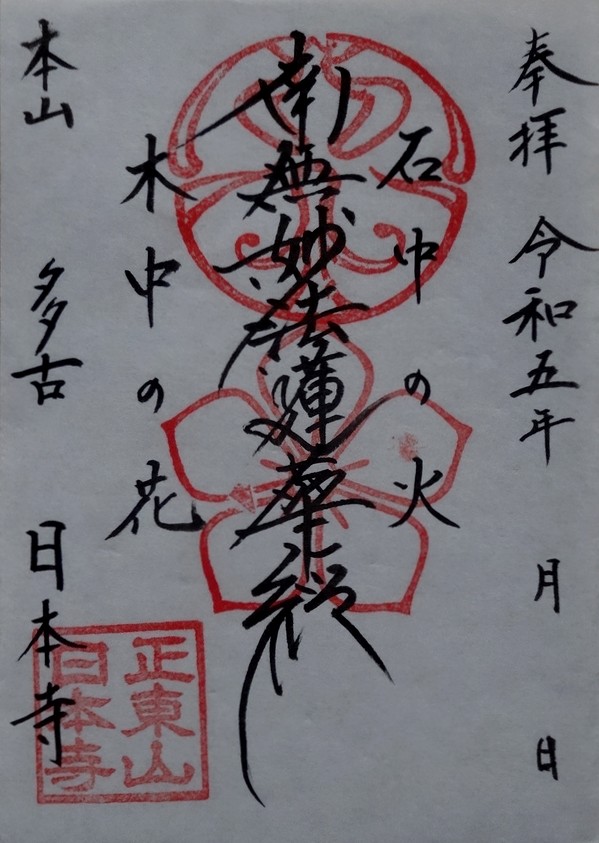 奉拝 令和五年 月 日
石中の火
南無妙法蓮華経
木中の花
本山 多古 日本寺
正東山
日本寺